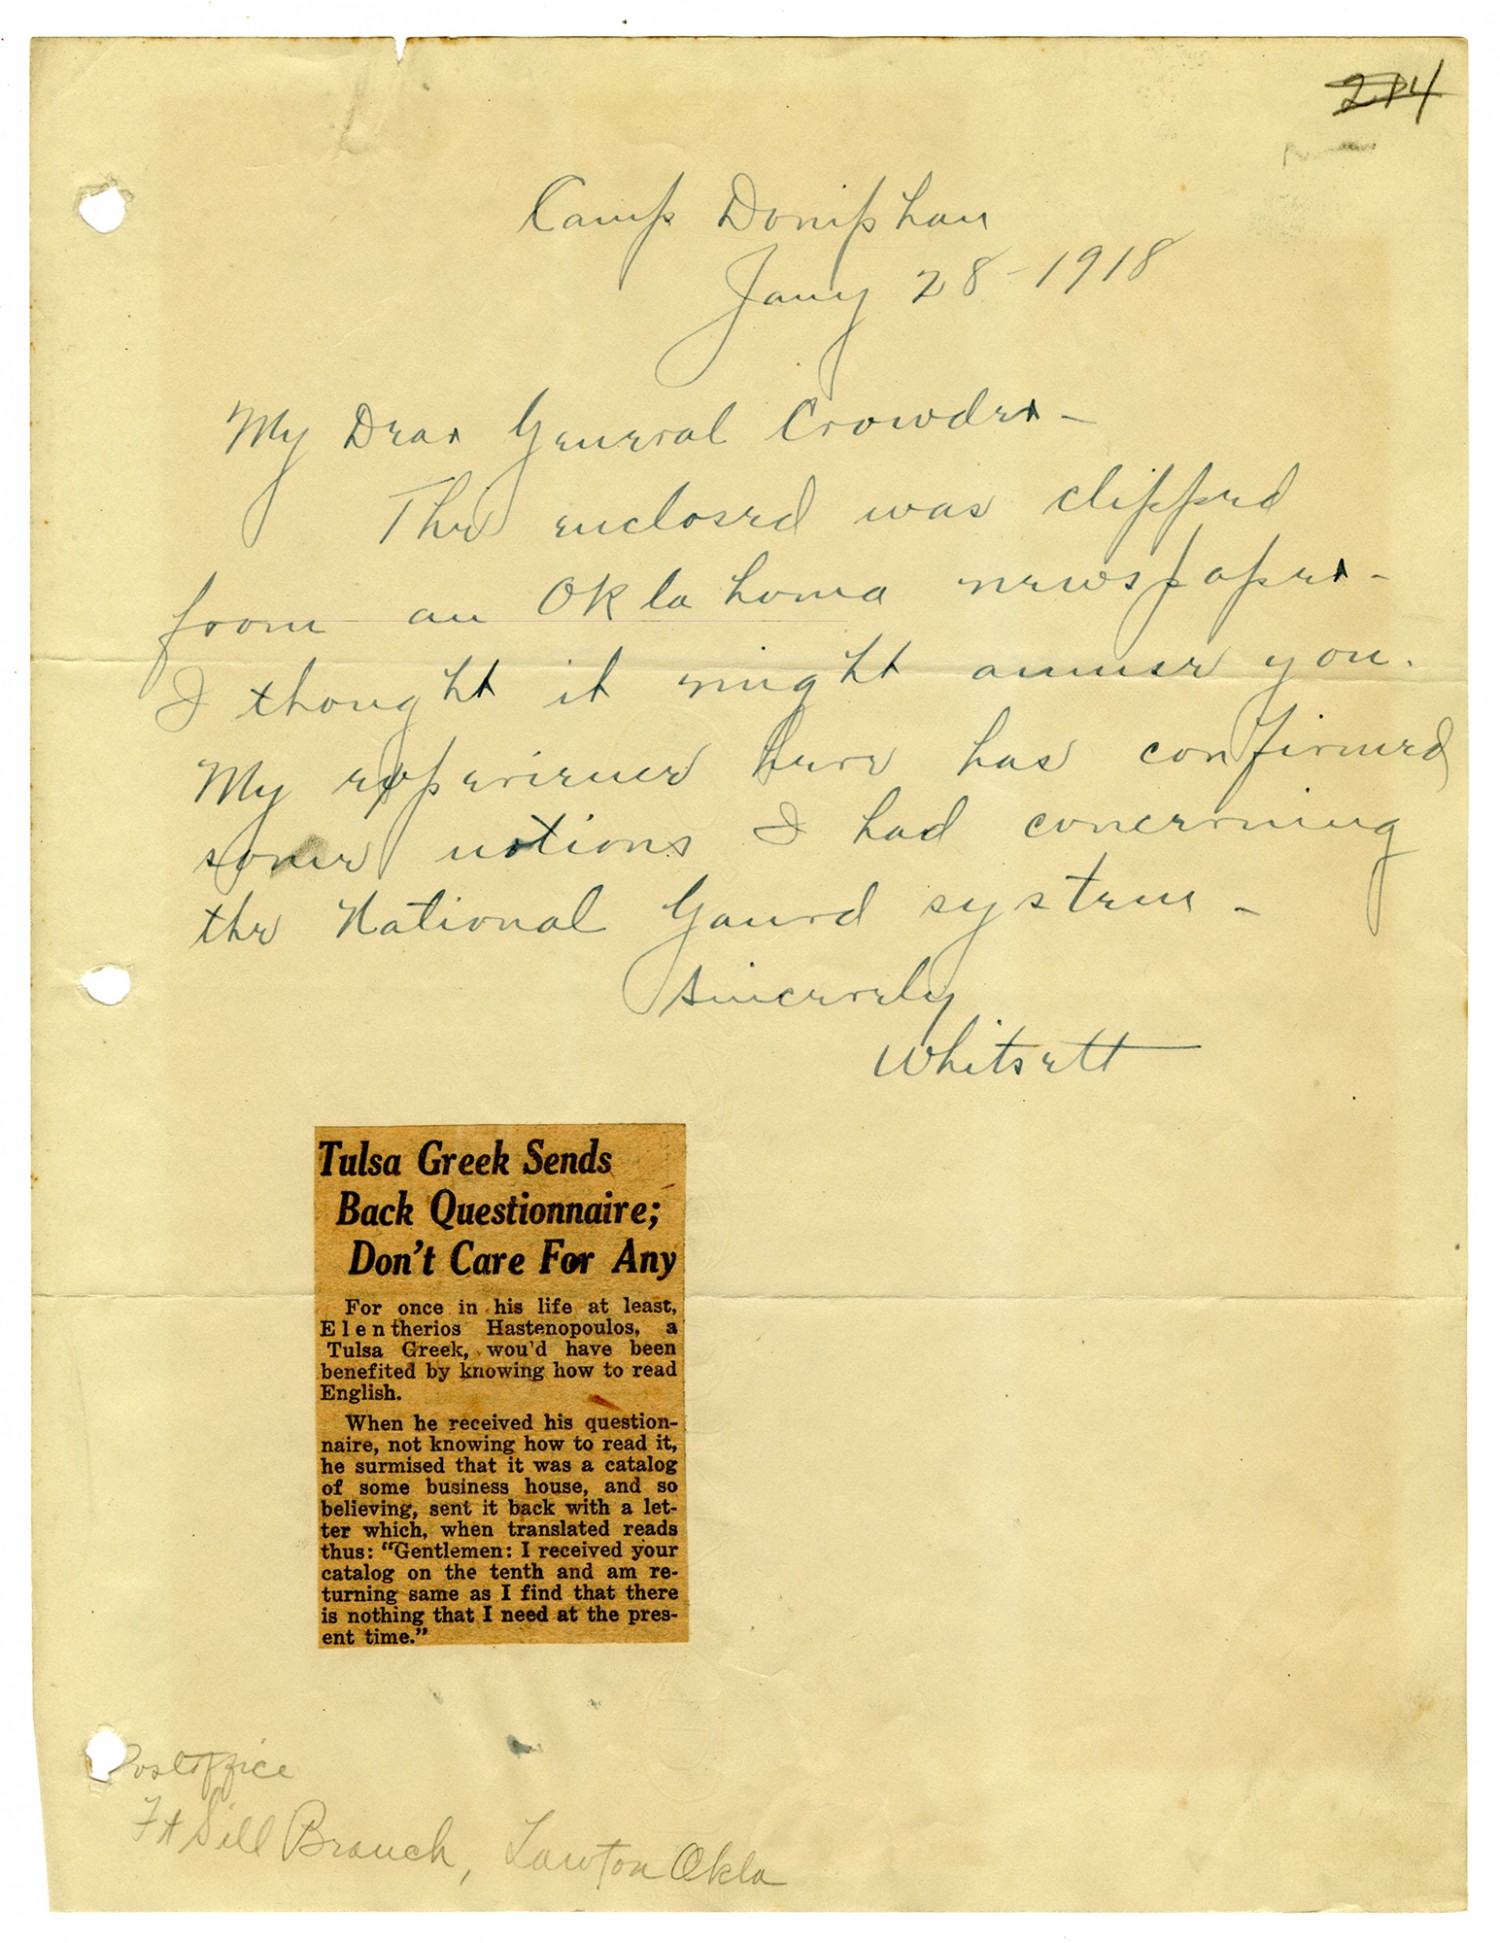 214
Camp Doniphan
Jany 28 - 1918
My Dear General Crowder -
The enclosed was clipped
from an Oklahoma newspaper -
I thought it might amuse you.
My experience here has confirmed
some notions I had concerning
the National Gaurd system -
Sincerely
Whitsett
Tulsa Greek Sends
Back Questionnaire;
Don't Care For Any
For once in his life at least,
Elentherios Hastenopoulos, a
Tulsa Greek, wou'd have been
benefited by knowing how to read
English.
When he received his question-
naire, not knowing how to read it,
he surmised that it was a catalog
of some business house, and so
believing, sent it back with a let-
ter which, when translated reads
thus: "Gentlemen: I received your
catalog on the tenth and am re-
turning same as I find that there
is nothing that I need at the pres-
ent time."
Postoffice
Ft Sill Branch, Lawton Okla